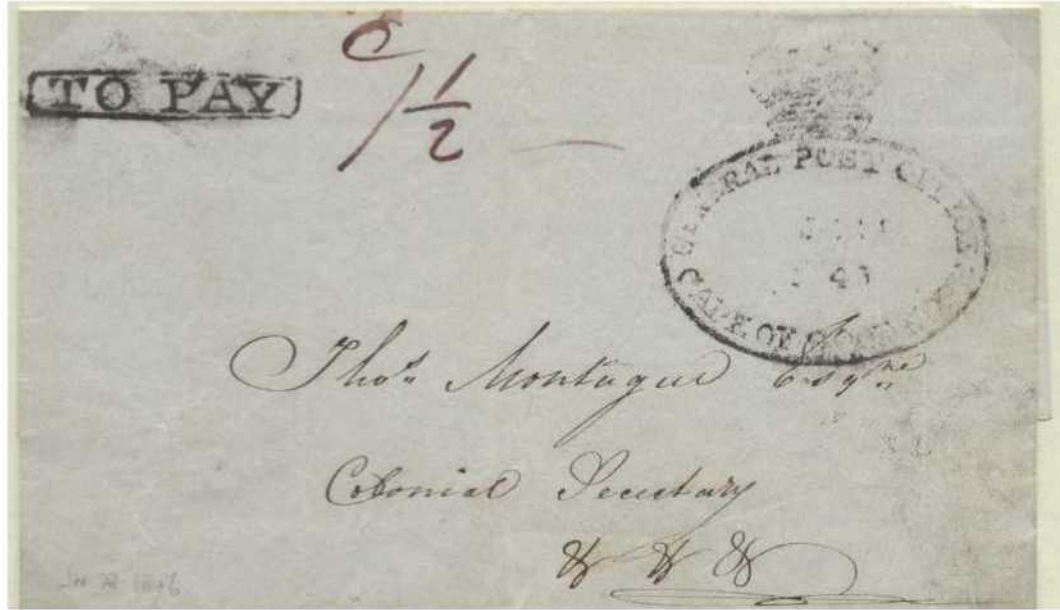 TO PAY
1/2
GENERAL POST OFFICE
CAPE OF GOOD HOPE
Thos. Montague Esqre
Colonial Secretary
& & &